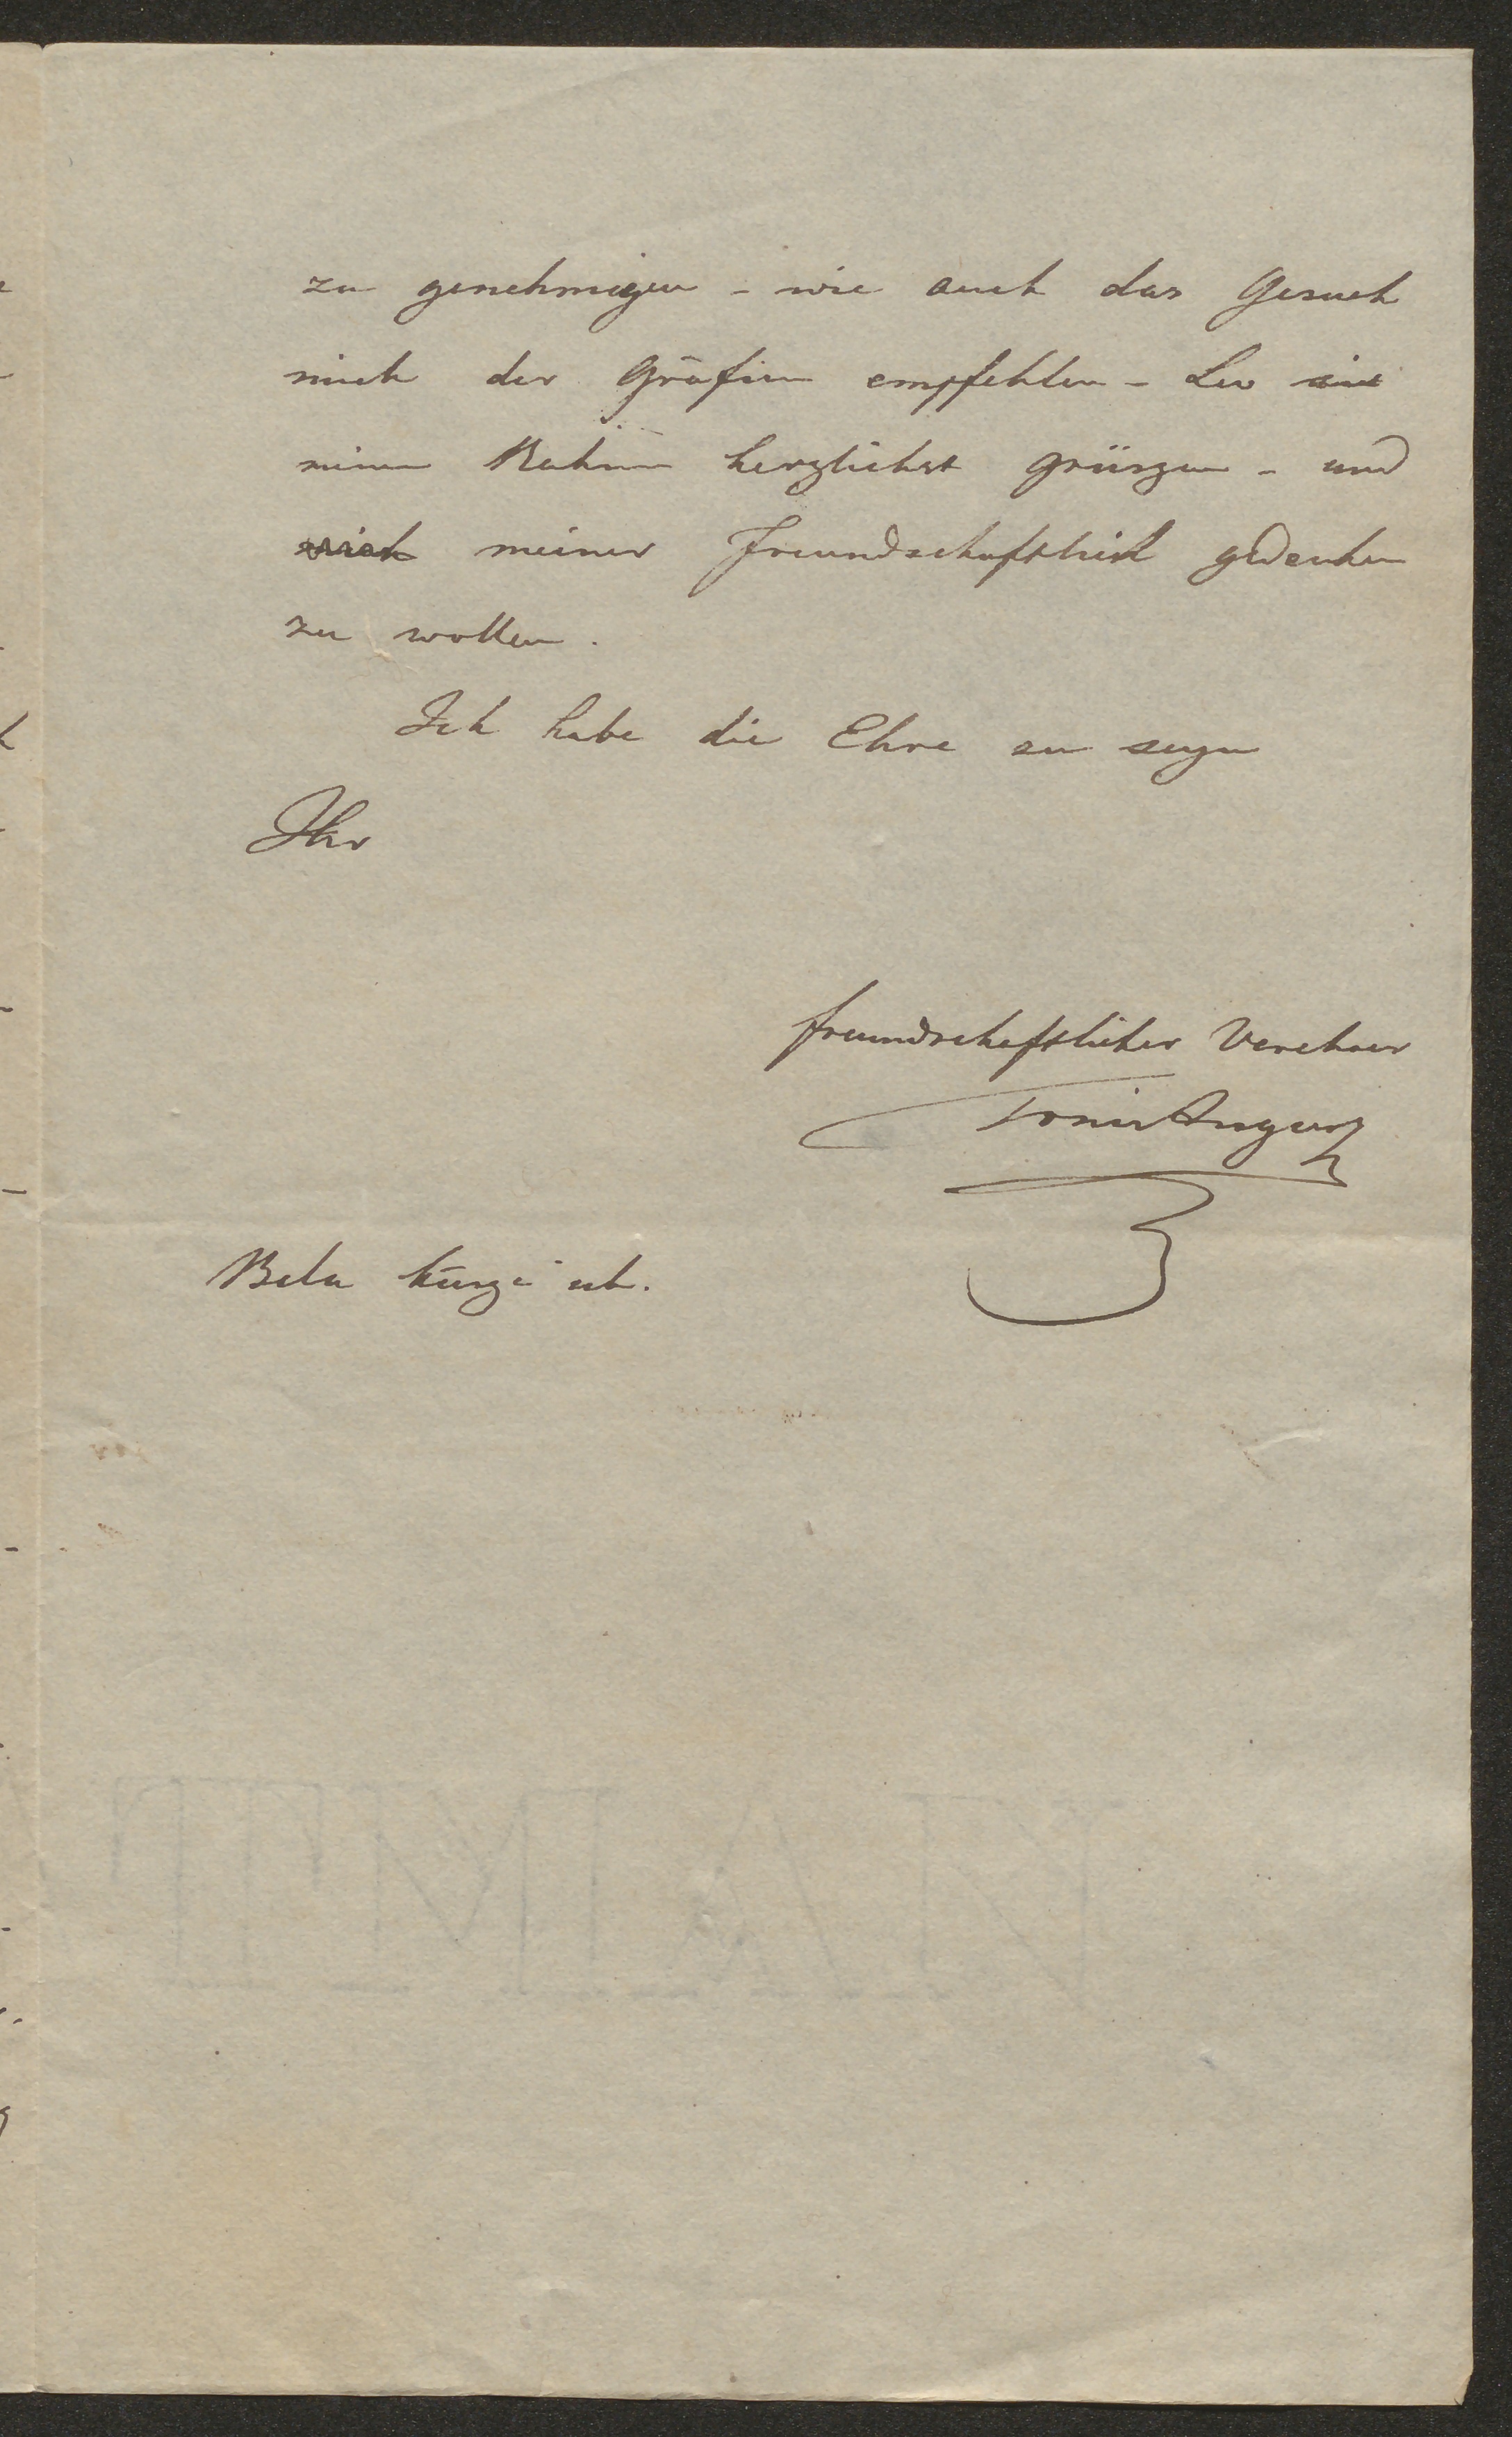 zu genehmigen - wie auch das Gesuch
mich der Gräfin empfehlen - Leo
meinen herzlichst grüszen - und
mich meiner freundschaftlich gedenken
zu wollen.
Ich habe die Ehre zu seyn
Ihr
freundschaftlicher Verehrer
Bela küszt